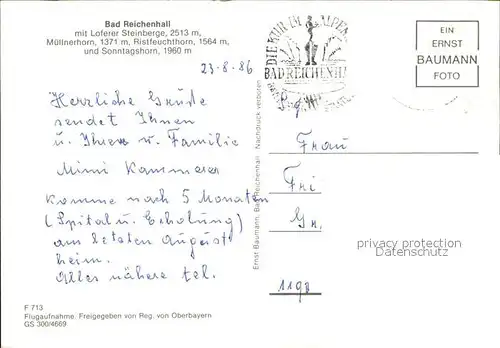 Bad Reichenhall
mit Loferer Steinberge, 2513 m,
Müllnerhorn, 1371 m, Ristfeuchthorn, 1564 m,
und Sonntagshorn, 1960 m
23-8-86
Herzliche Grüße
sendet Ihnen
u. Ihrer w. Familie
Mimi Kammerer
Komme nach 5 Monaten
(Spital u. Erholung)
am letzten August
heim.
Alles nähere tel.
F 713
Flugaufnahme. Freigegeben von Reg. von Oberbayern
GS 300/4669
Ernst Baumann, Bad Reichenhall Nachdruck verboten
DIE KUR IM ALPEN
BAD REICHENHALL
EIN
ERNST
BAUMANN
FOTO
Frau
Fri
Gr.
1190
privacy protection
Datenschutz